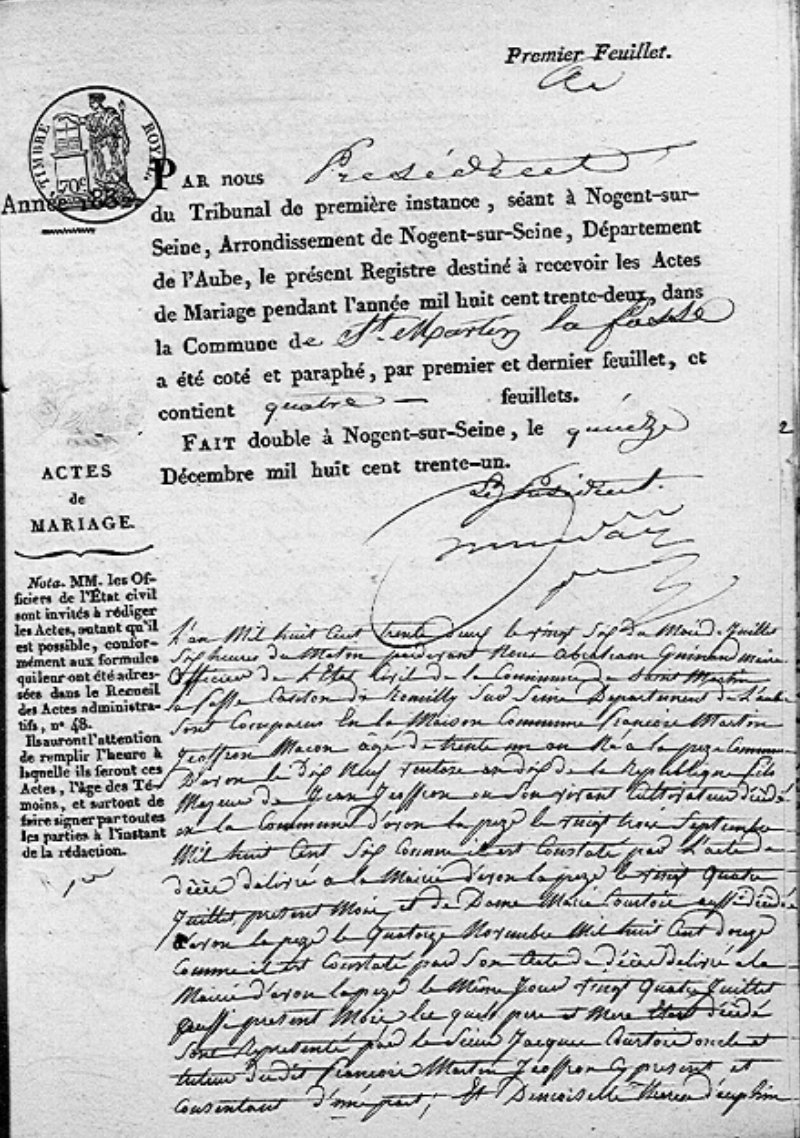 Premier Feuillet.
TIMBRE ROYAL
70c
Année 1832.
PAR nous Président
du Tribunal de première instance, séant à Nogent-sur-
Seine, Arrondissement de Nogent-sur-Seine, Département
de l'Aube, le présent Registre destiné à recevoir les Actes
de Mariage pendant l'année mil huit cent trente-deux, dans
la Commune de St. Martin la fosse
a été coté et paraphé, par premier et dernier feuillet, et
contient quatre — feuillets.
FAIT double à Nogent-sur-Seine, le quinze
Décembre mil huit cent trente-un.
Le Président.
2
ACTES
de
MARIAGE.
Nota. MM. les Of-
ficiers de l'État civil
sont invités à rédiger
les Actes, autant qu'il
est possible, confor-
mément aux formules
qui leur ont été adres-
sées dans le Recueil
des Actes administra-
tifs, n° 48.
Ils auront l'attention
de remplir l'heure à
laquelle ils feront ces
Actes, l'âge des Té-
moins, et surtout de
faire signer par toutes
les parties à l'instant
de la rédaction.
L'an Mil huit Cent trente deux le vingt Six du Mois de Juillet
Six heures du Matin pardevant Abraham Maire
Officier de L'Etat Civil de la Commune de Saint Martin
la fosse Canton de Romilly Sur Seine Departement de L'aube
Sont Comparus En la Maison Commune françois Martin
Jeoffron Macon âgé de trente un an Né a la peze Commune
D'avon le Dix Neuf ventose an dix de la Republique fils
Majeur de Jean Jeoffron en Son vivant Cultivateur décédé
en la Commune d'avon la peze le vingt trois Septembre
Mil huit Cent Six Comme il est Constaté par L'acte de
décès delivré a la Mairie d'avon la peze le vingt Quatre
Juillet present Mois et de Dame Marie Courtois aussi décédée
d'avon la peze le Quatorze Novembre Mil huit Cent douze
Comme il est Constaté par Son acte de décès delivré a la
Mairie d'avon la peze le Même Jour vingt Quatre Juillet
aussi present Mois les quels pere et Mere Etant décédé
Sont Representé par le Sieur Jacques Courtois oncle et
tuteur du dit françois Martin Jeoffron Cy present et
Consentant d'une part; Et Demoiselle